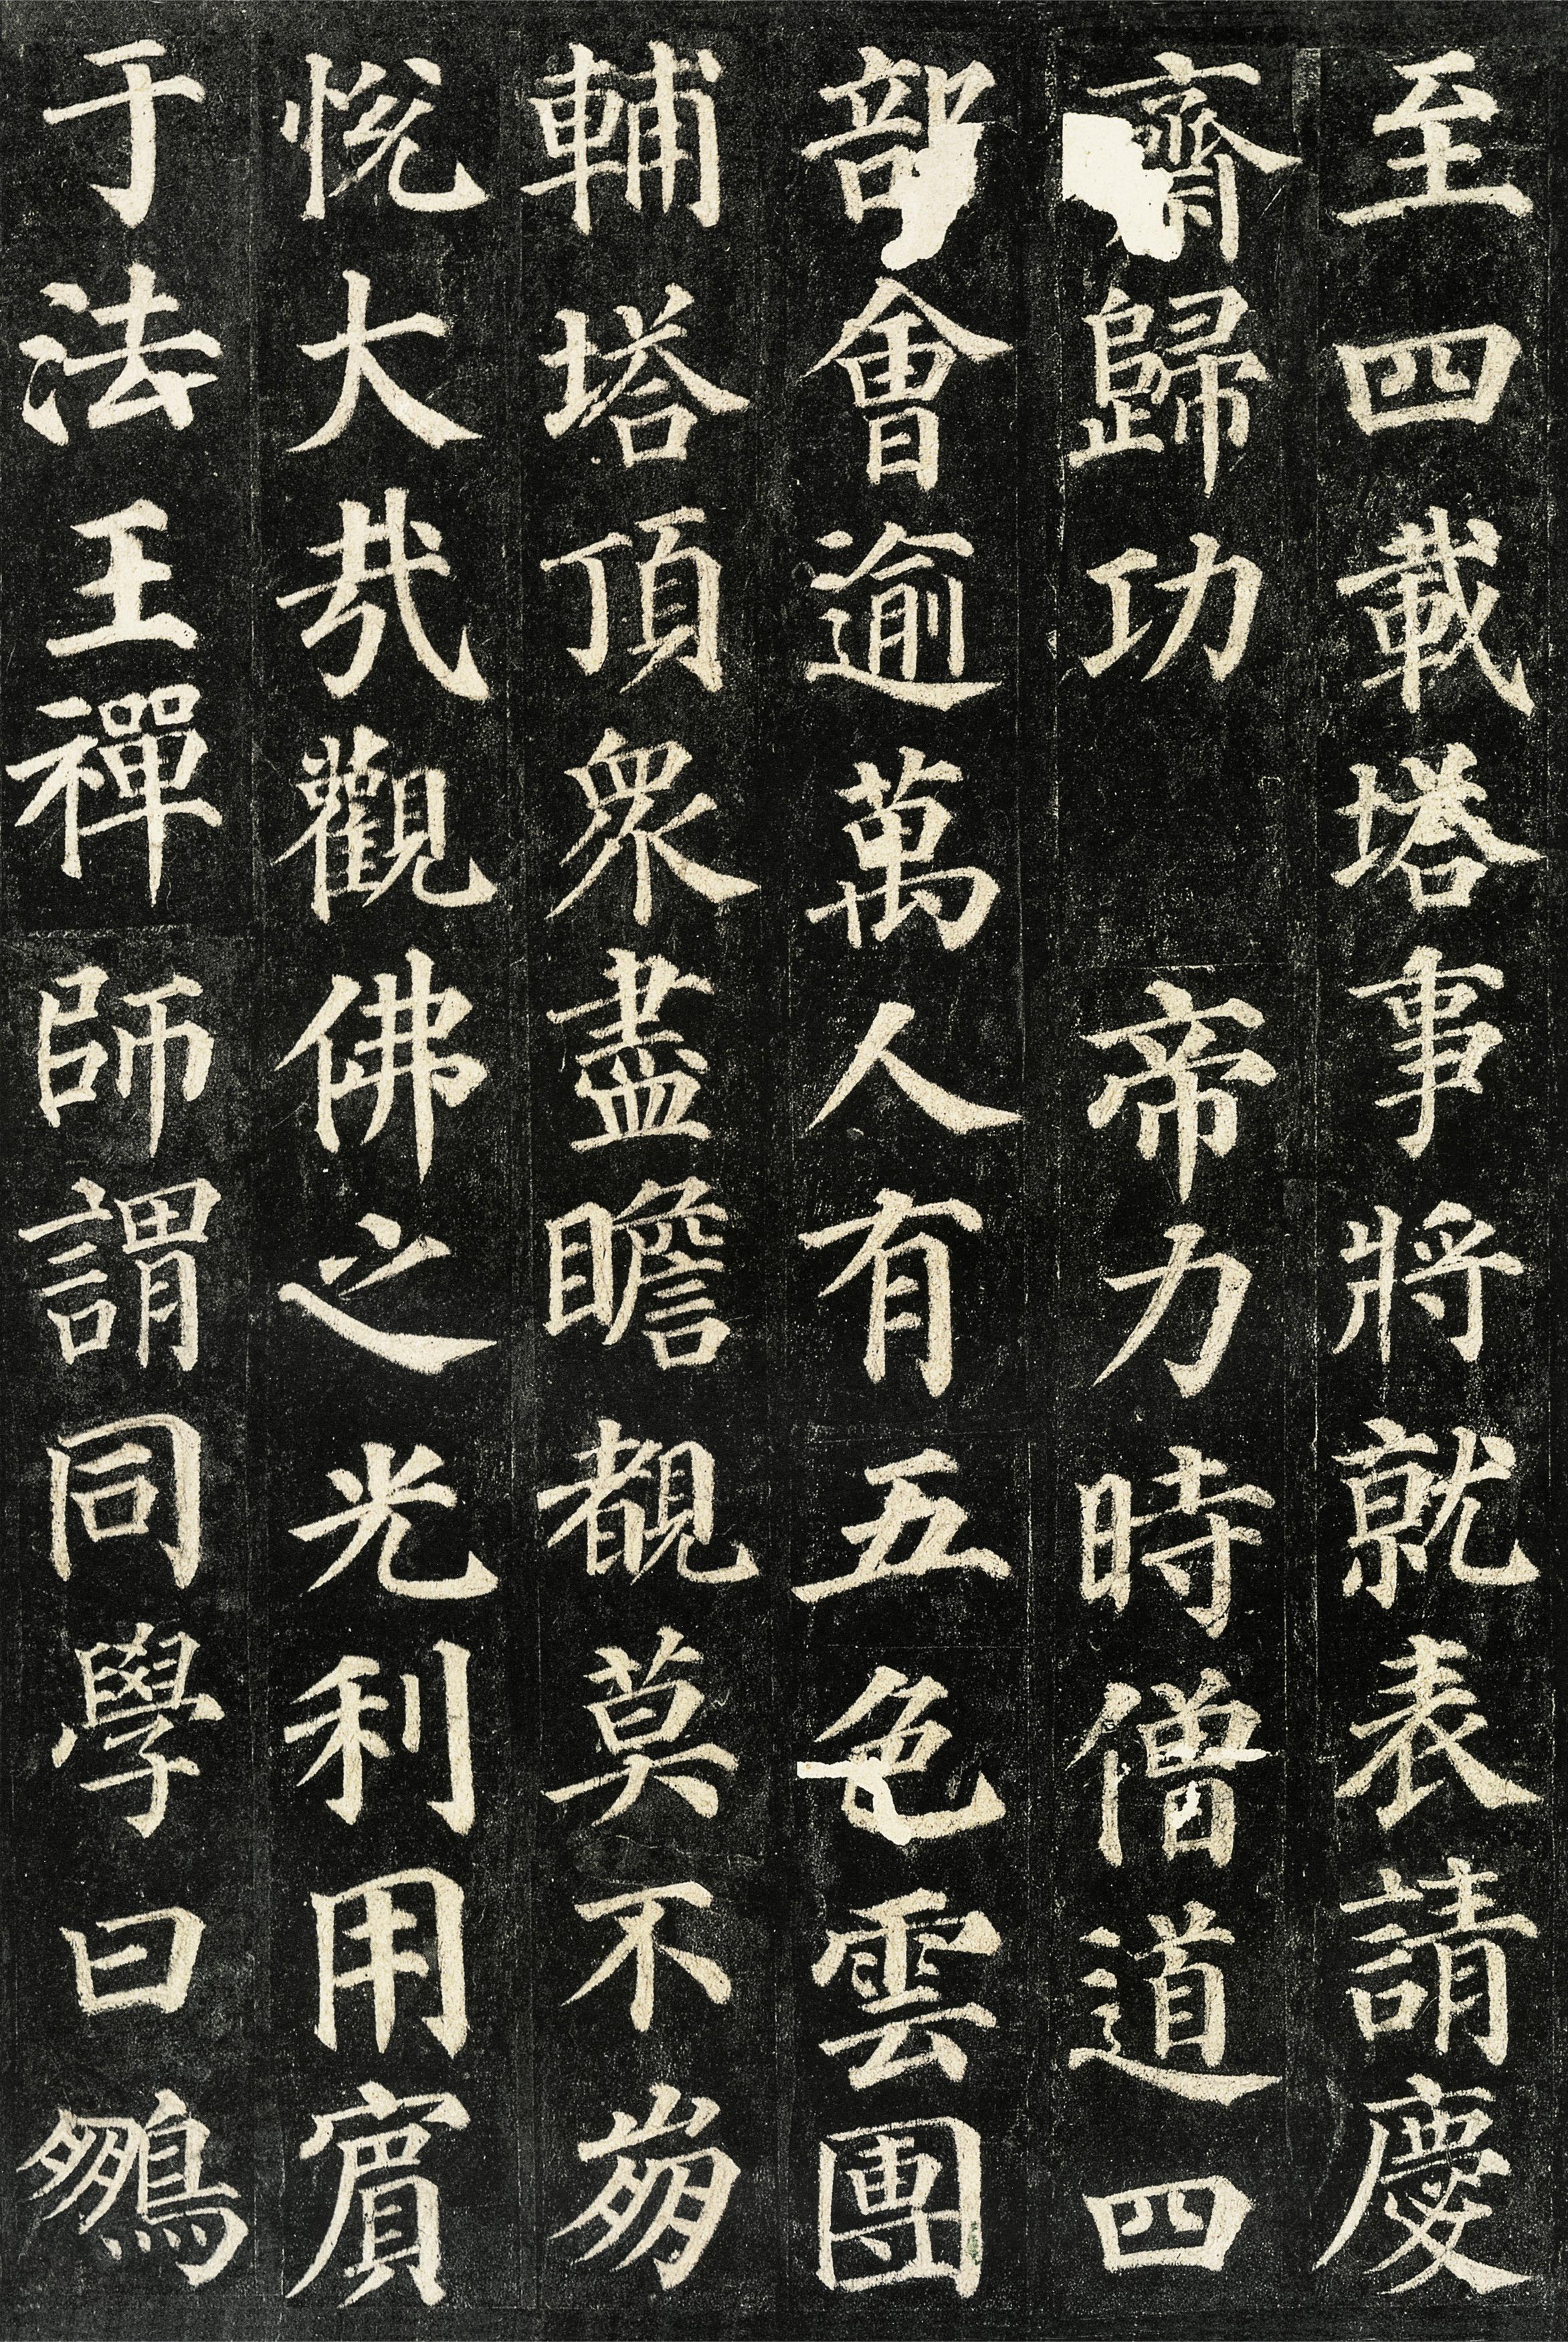 至四載塔事將就表請慶
齋歸功帝力時僧道四
部會逾萬人有五色雲團
輔塔頂眾盡瞻覩莫不崩
悅大哉觀佛之光利用賓
于法王禪師謂同學曰鵬